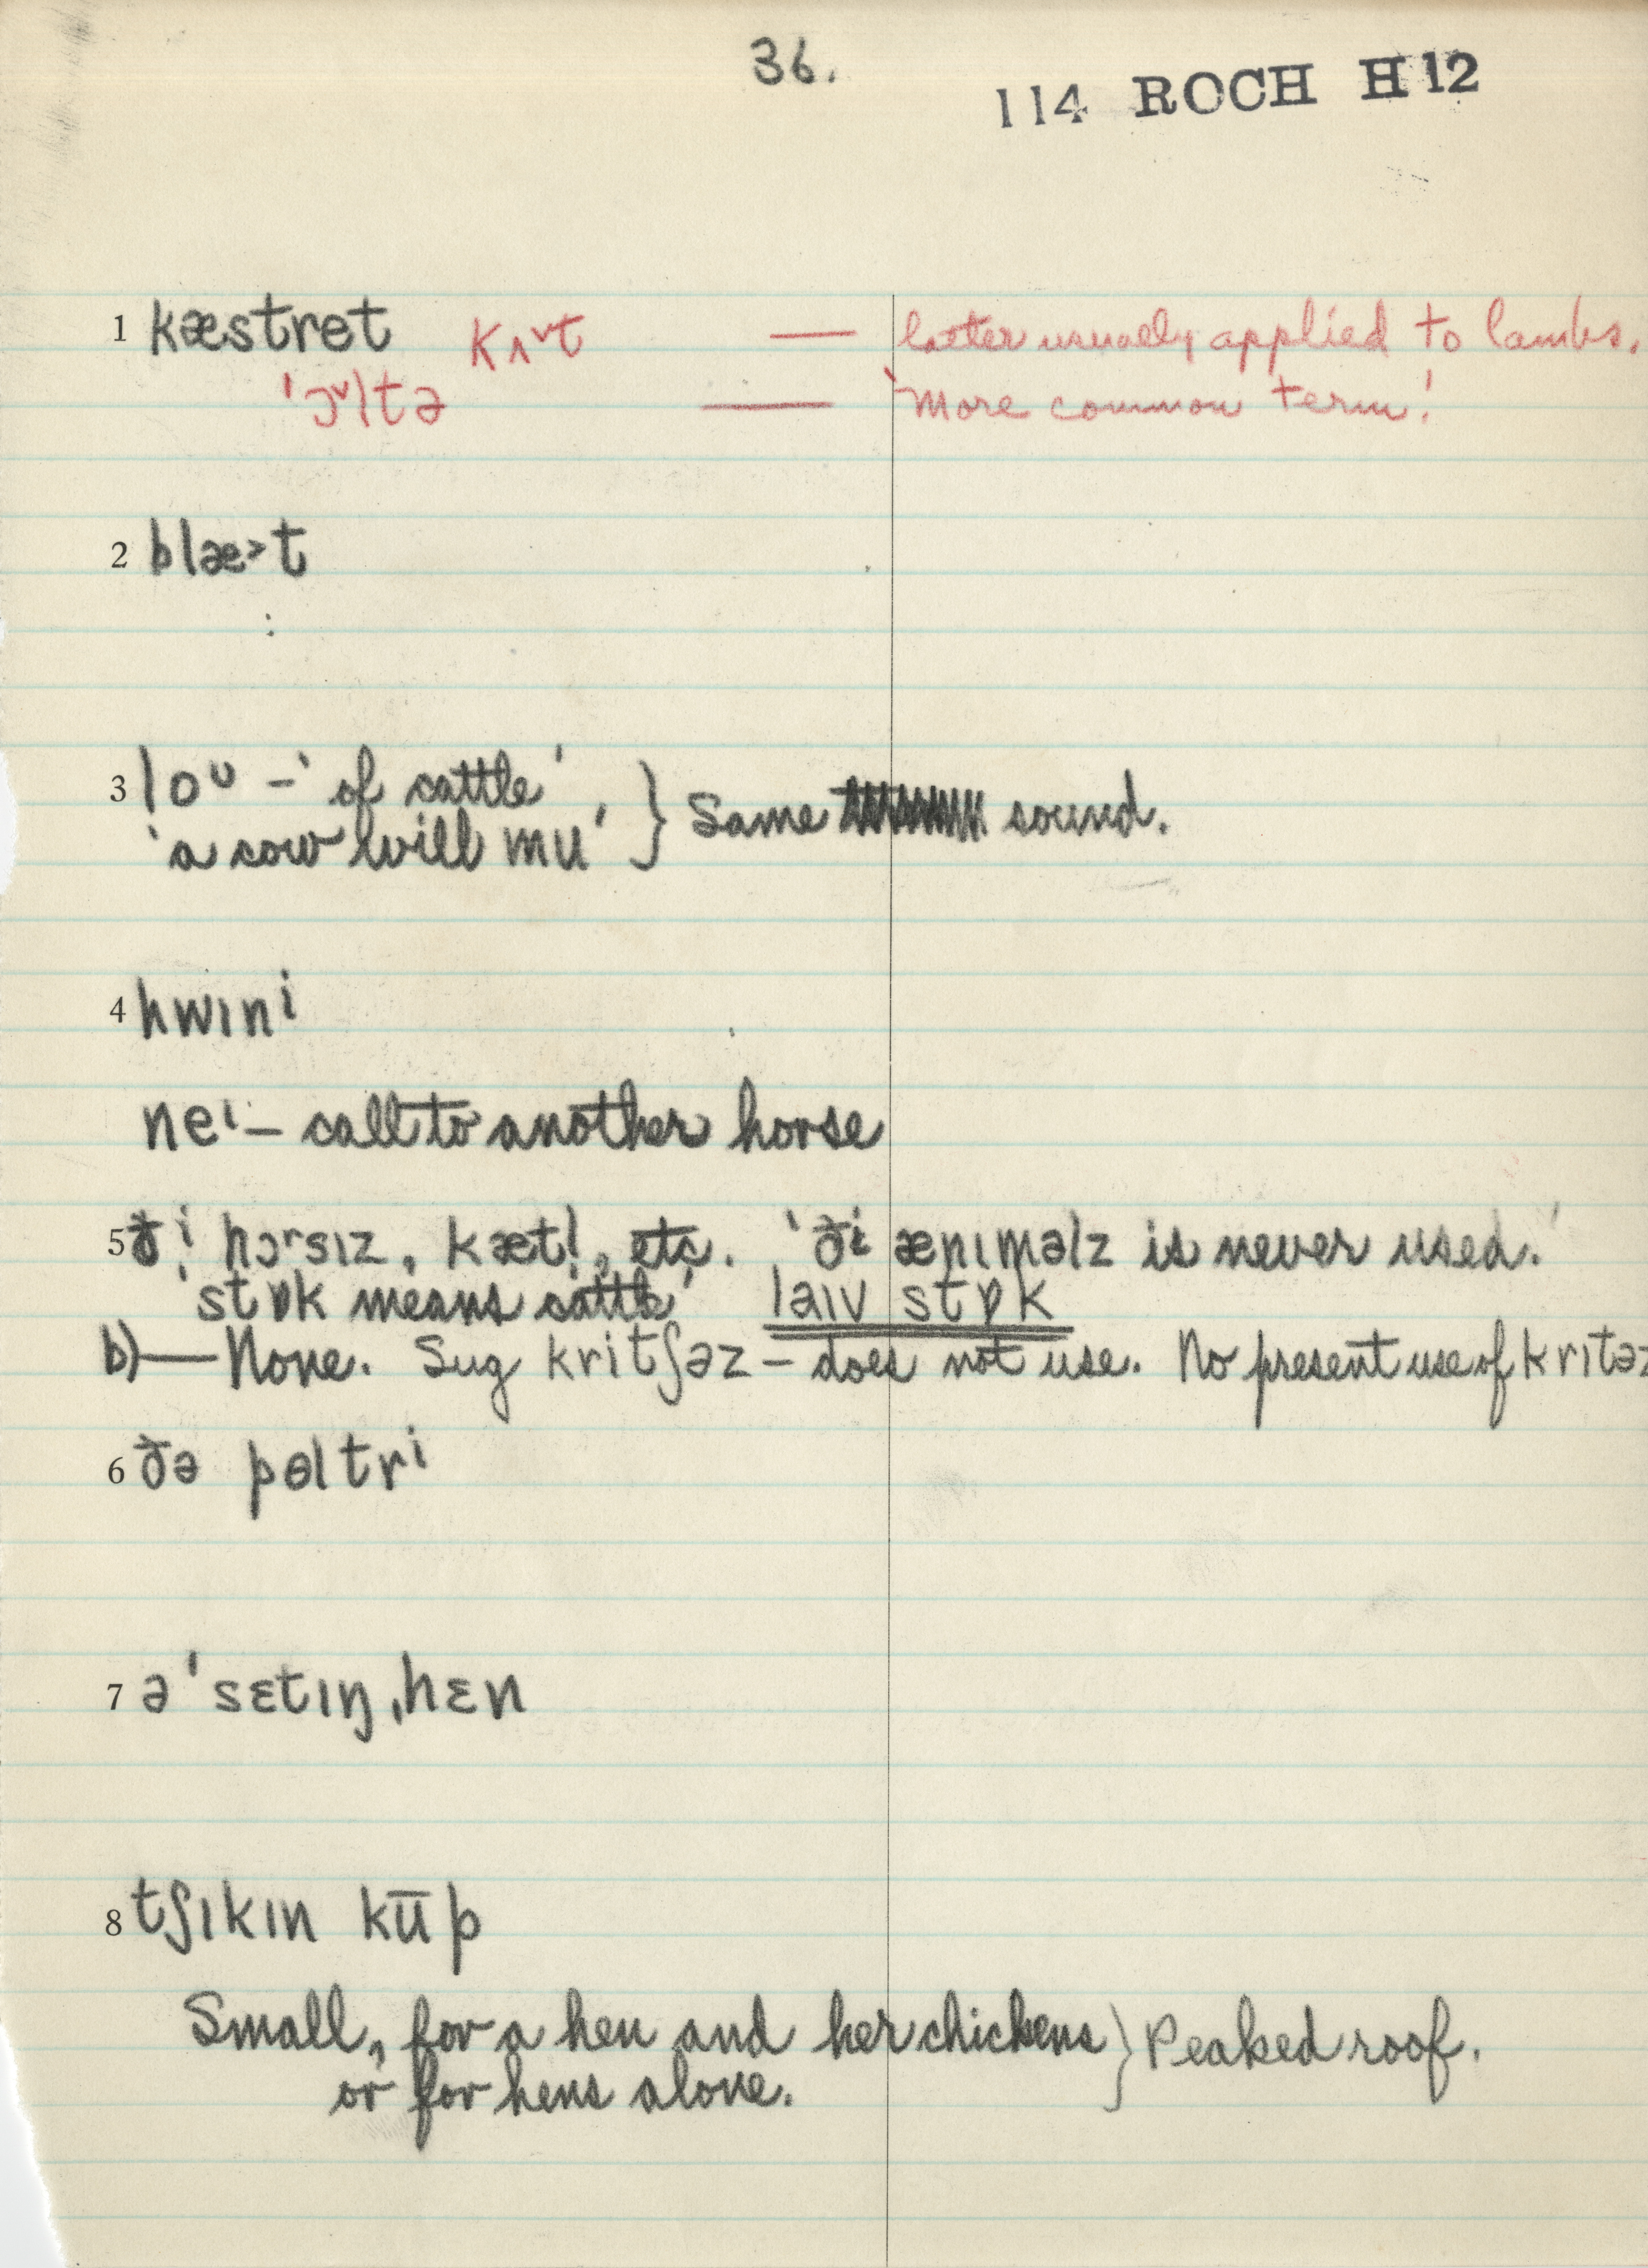 36.
114 ROCH H12
1 kæstret kʌ˅t — latter usually applied to lambs.
'ɔ˅ltə — 'more common term.'
2 blæ˃t
3 loᴜ – 'of cattle'
'a cow will mu' } Same sound.
4 hwɪnⁱ
neᶦ – call to another horse
5 ðⁱ hɔʳsɪz, kætl̩, etc. 'ðɨ ænɪməlz is never used.'
'stɒk means cattle' laɪv stɒk
b) — None. Sug kritʃəz – does not use. No present use of kritəz
6 ðə pɵltrⁱ
7 ə 'sɛtɪŋ ˌhɛn
8 tʃɪkɪn kūp
Small, for a hen and her chickens
or for hens alone. } Peaked roof.